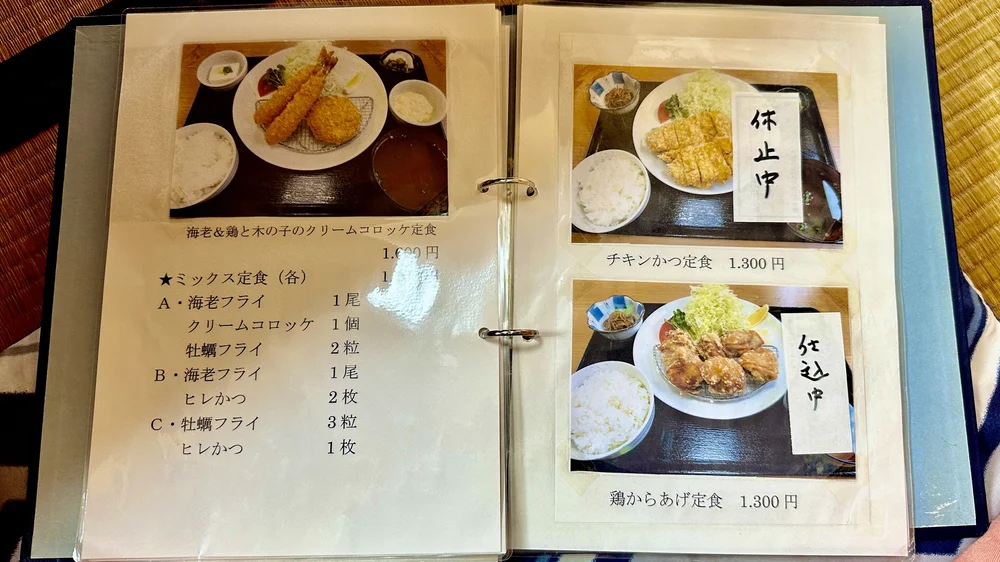 海老&鶏と木の子のクリームコロッケ定食
1.600円
★ミックス定食（各）
A・海老フライ 1尾
クリームコロッケ 1個
牡蠣フライ 2粒
B・海老フライ 1尾
ヒレかつ 2枚
C・牡蠣フライ 3粒
ヒレかつ 1枚
休止中
チキンかつ定食 1.300円
仕込中
鶏からあげ定食 1.300円